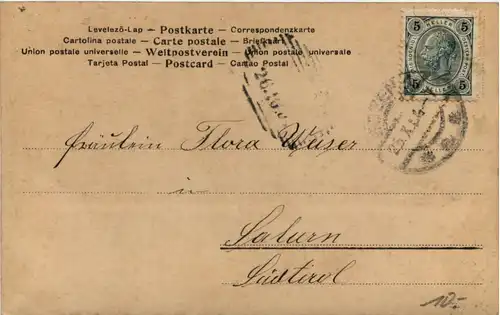 Levelező-Lap — Postkarte — Correspondenzkarte
Cartolina postale — Carte postale — Briefkaart
Union postale universelle — Weltpostverein — Union postale universale
Tarjeta Postal — Postcard — Cartao Postal
5 HELLER 5
5 HELLER 5
26.10.
25.X.
Fräulein Flora Waiser
in
Salurn
Südtirol
10.-